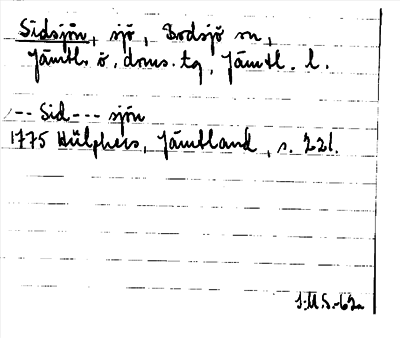 Sidsjön, sjö, Bodsjö sn,
Jämtls ö. doms. tg, Jämtl. l.
-- Sid --- sjön
1775 Hülphers, Jämtland, s. 221.
J.M.S.-62